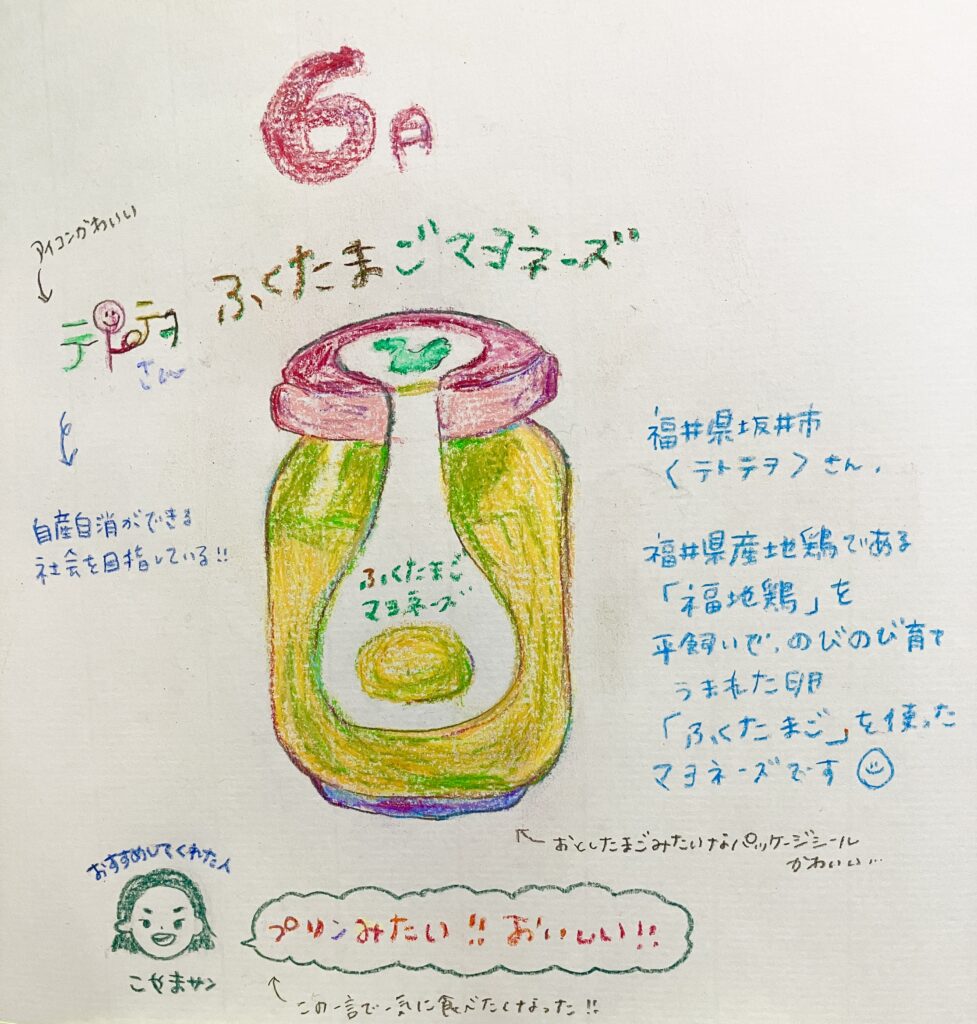 6月
アイコンかわいい
ふくたまごマヨネーズ
テトテヲ
さん
自産自消ができる
社会を目指している!!
ふくたまご
マヨネーズ
福井県坂井市
〈テトテヲ〉さん、
福井県産地鶏である
「福地鶏」を
平飼いで、のびのび育て
うまれた卵
「ふくたまご」を使った
マヨネーズです
おとしたまごみたいなパッケージシール
かわいい…
おすすめしてくれた人
こやまサン
プリンみたい!!おいしい!!
この一言で一気に食べたくなった!!